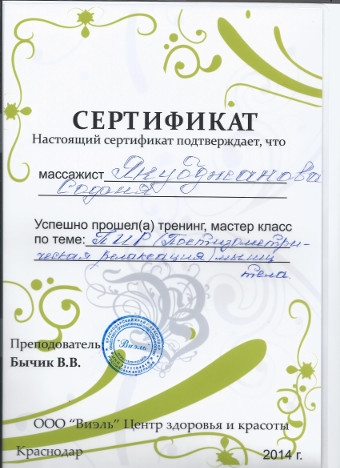 СЕРТИФИКАТ
Настоящий сертификат подтверждает, что
массажист Якубджанова
Содэпя
Успешно прошел(а) тренинг, мастер класс
по теме: ПИР (Постизометри-
ческая релаксация) мышц
тела
Преподаватель
Бычик В.В.
"Виэль"
ООО "Виэль" Центр здоровья и красоты
Краснодар
2014 г.